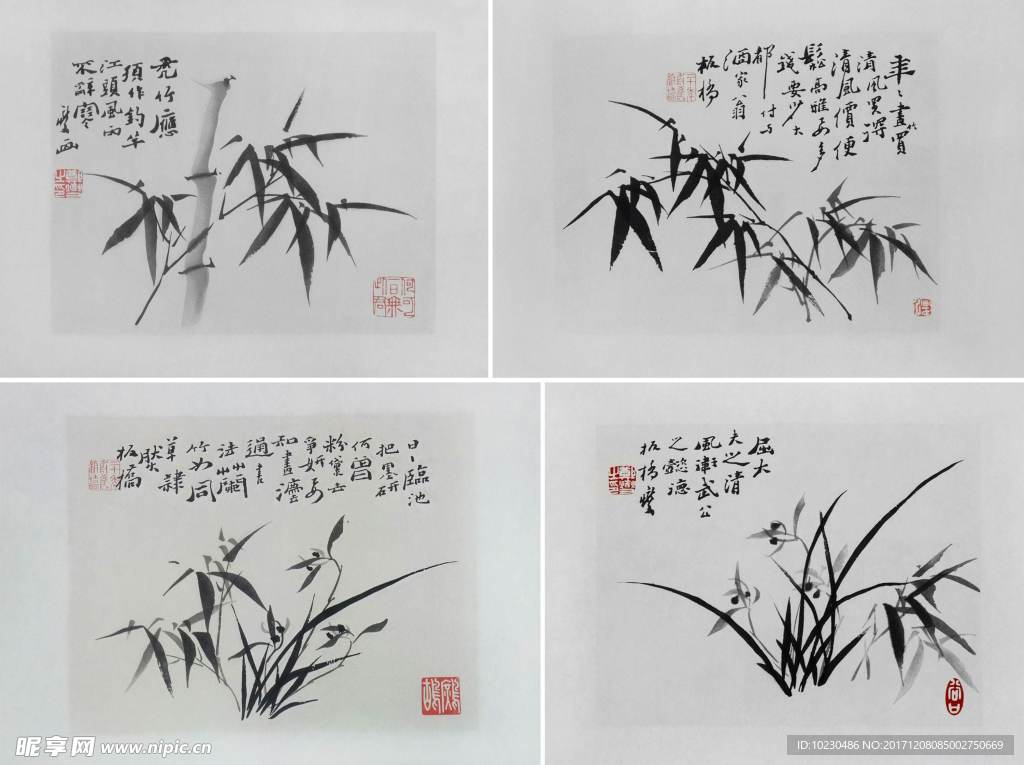 秃竹應
須作釣竿
江頭風雨
不辭寒
燮画
何可一日無此君
年年畫竹買
清風買得
清風價便
鬆高雅要多
錢要少大
都付与
酒家翁
板橋
日日臨池
把墨研
何曾
粉黛去
爭妍要
知畫灋
通書
法蘭
竹如同
草隸
然
板橋
屈大
夫之清
風衛武公
之懿德
板橋燮
鷓鴣
昵享网 www.nipic.cn
ID:10230486 NO:20171208085002750669